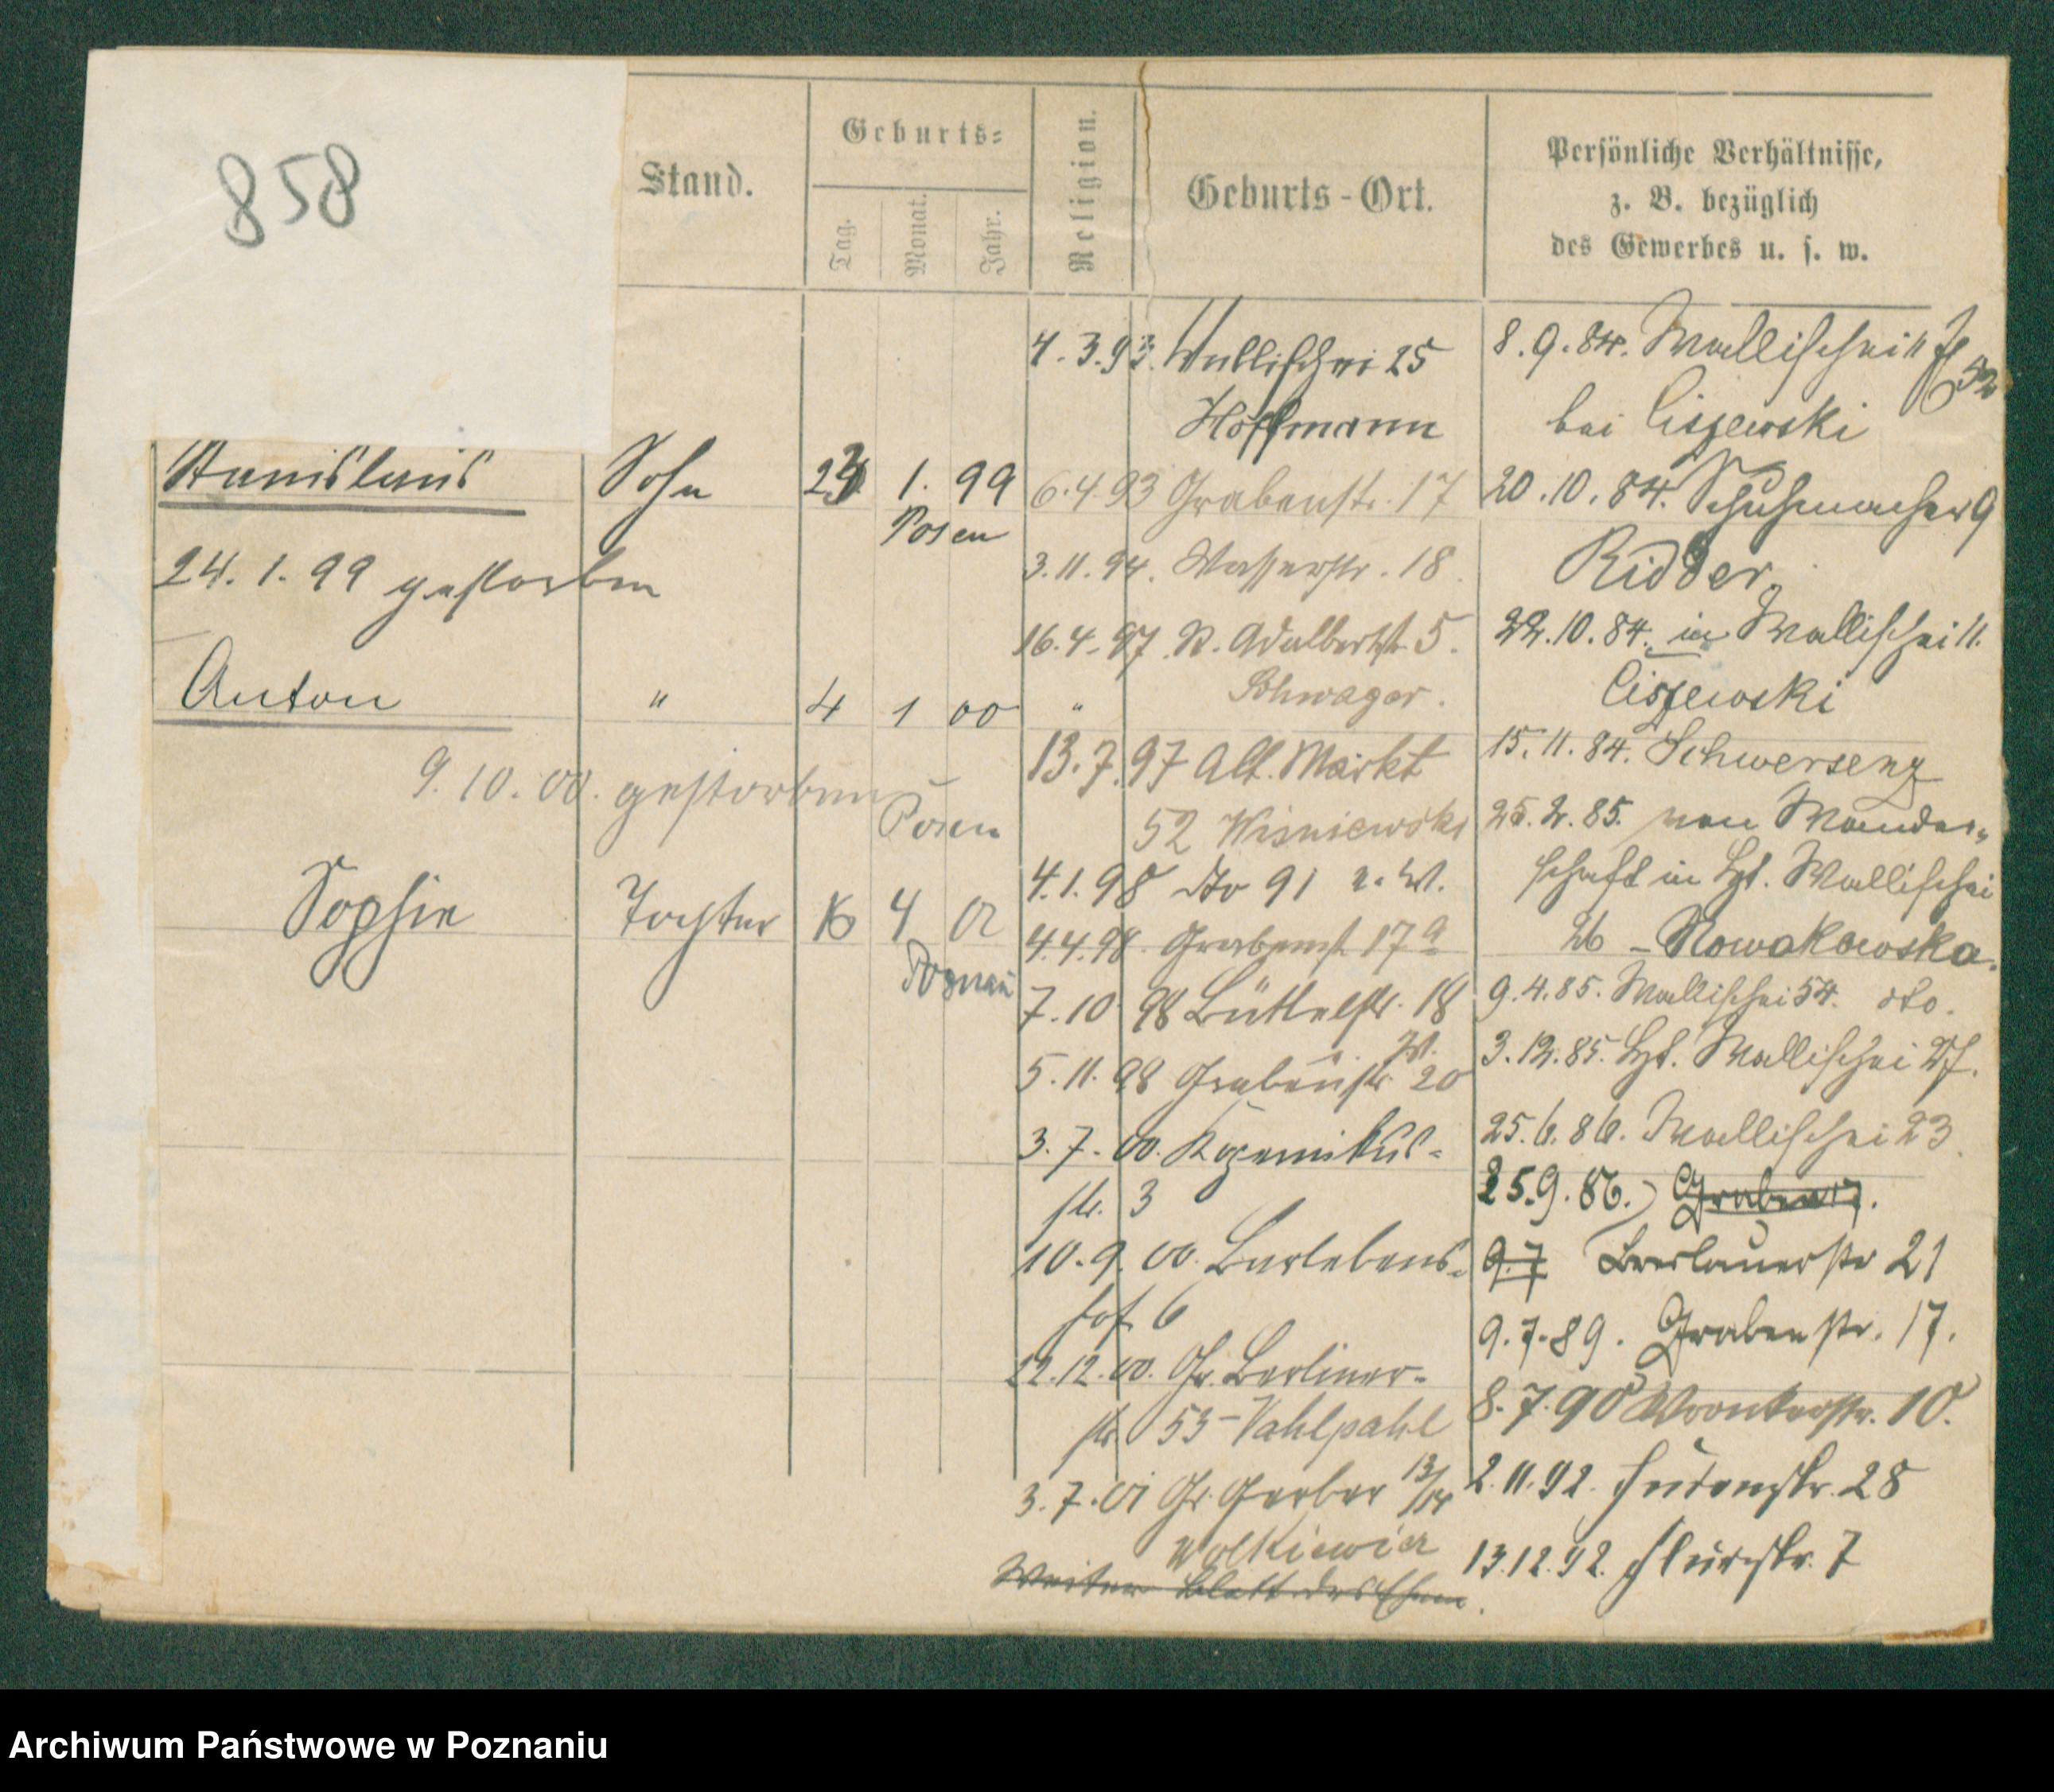 858
Stand.
Geburts=
Tag.
Monat.
Jahr.
Religion.
Geburts-Ort.
Persönliche Verhältnisse,
z. B. bezüglich
des Gewerbes u. s. w.
Stanislaus Sohn 1. 99
Posen
24. 1. 99 gestorben
Anton " 4 1 00 "
9. 10. 00. gestorben
Posen
Sophie Tochter 16 4 02
Poznań
4. 3. 93. Wallischei 25
Hoffmann
6. 4. 93 Grabenstr. 17
3. 11. 94. Wasserstr. 18.
16. 4. 97 St. Adalbertstr. 5.
Schwager.
13. 7. 97 Alt. Markt
52 Wisniewski
4. 1. 98 dto 91
4. 4. 98. Grabenst 17a
7. 10. 98 Büttelstr. 18
W.
5. 11. 98 Grabenstr. 20
3. 7. 00.
str. 3
10. 9. 00. Barlebens-
hof 6
22. 12. 00. Gr. Berliner-
str 53 - Vahlpahl
3. 7. 01 Gr. Gerber 13/14
Wolkiewicz
Weiter Blatt des
8. 9. 84. Wallischei 11
bei Ciszewski
20. 10. 84. Schuhmacher 9
Ridder.
22. 10. 84. in Wallischei 11.
Ciszewski
15. 11. 84. Schwersenz
25. 2. 85. von Wander-
schaft in Wallischei
26 - Nowakowska.
9. 4. 85. Wallischei 54. dto.
3. 12. 85. Wallischei 27.
25. 6. 86. Wallischei 23.
25. 9. 86. Graben 17.
9. 7 Breslauerstr 21
9. 7. 89. Grabenstr. 17.
8. 7. 90 Wronkerstr. 10.
2. 11. 92. Judenstr. 28
13. 12. 92. Flurstr. 7
Archiwum Państwowe w Poznaniu